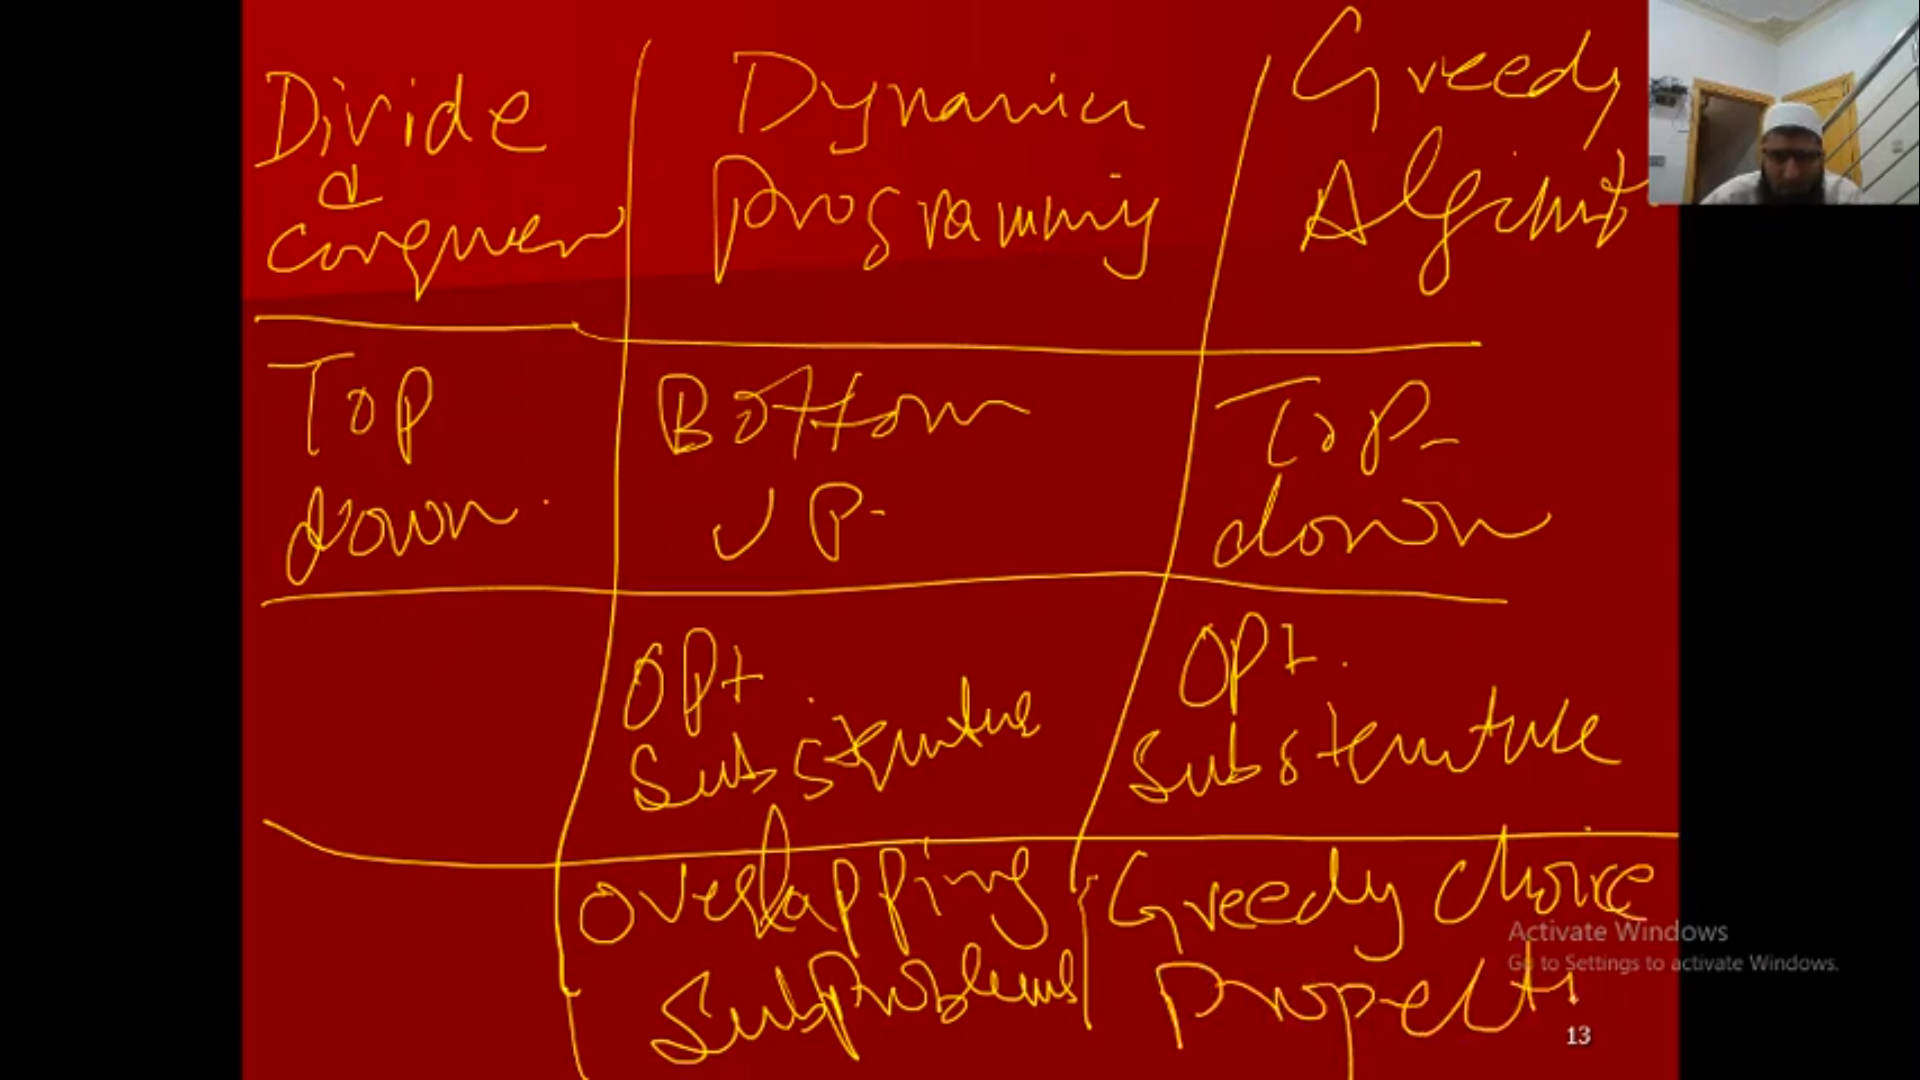 Divide
&
conquer
Dynamic
Programming
Greedy
Algorithm
Top
down.
Bottom
UP-
Top-
down
Opt
Substructure
Opt.
Substructure
Overlapping
Subproblems
Greedy choice
Property
Activate Windows
Go to Settings to activate Windows.
13